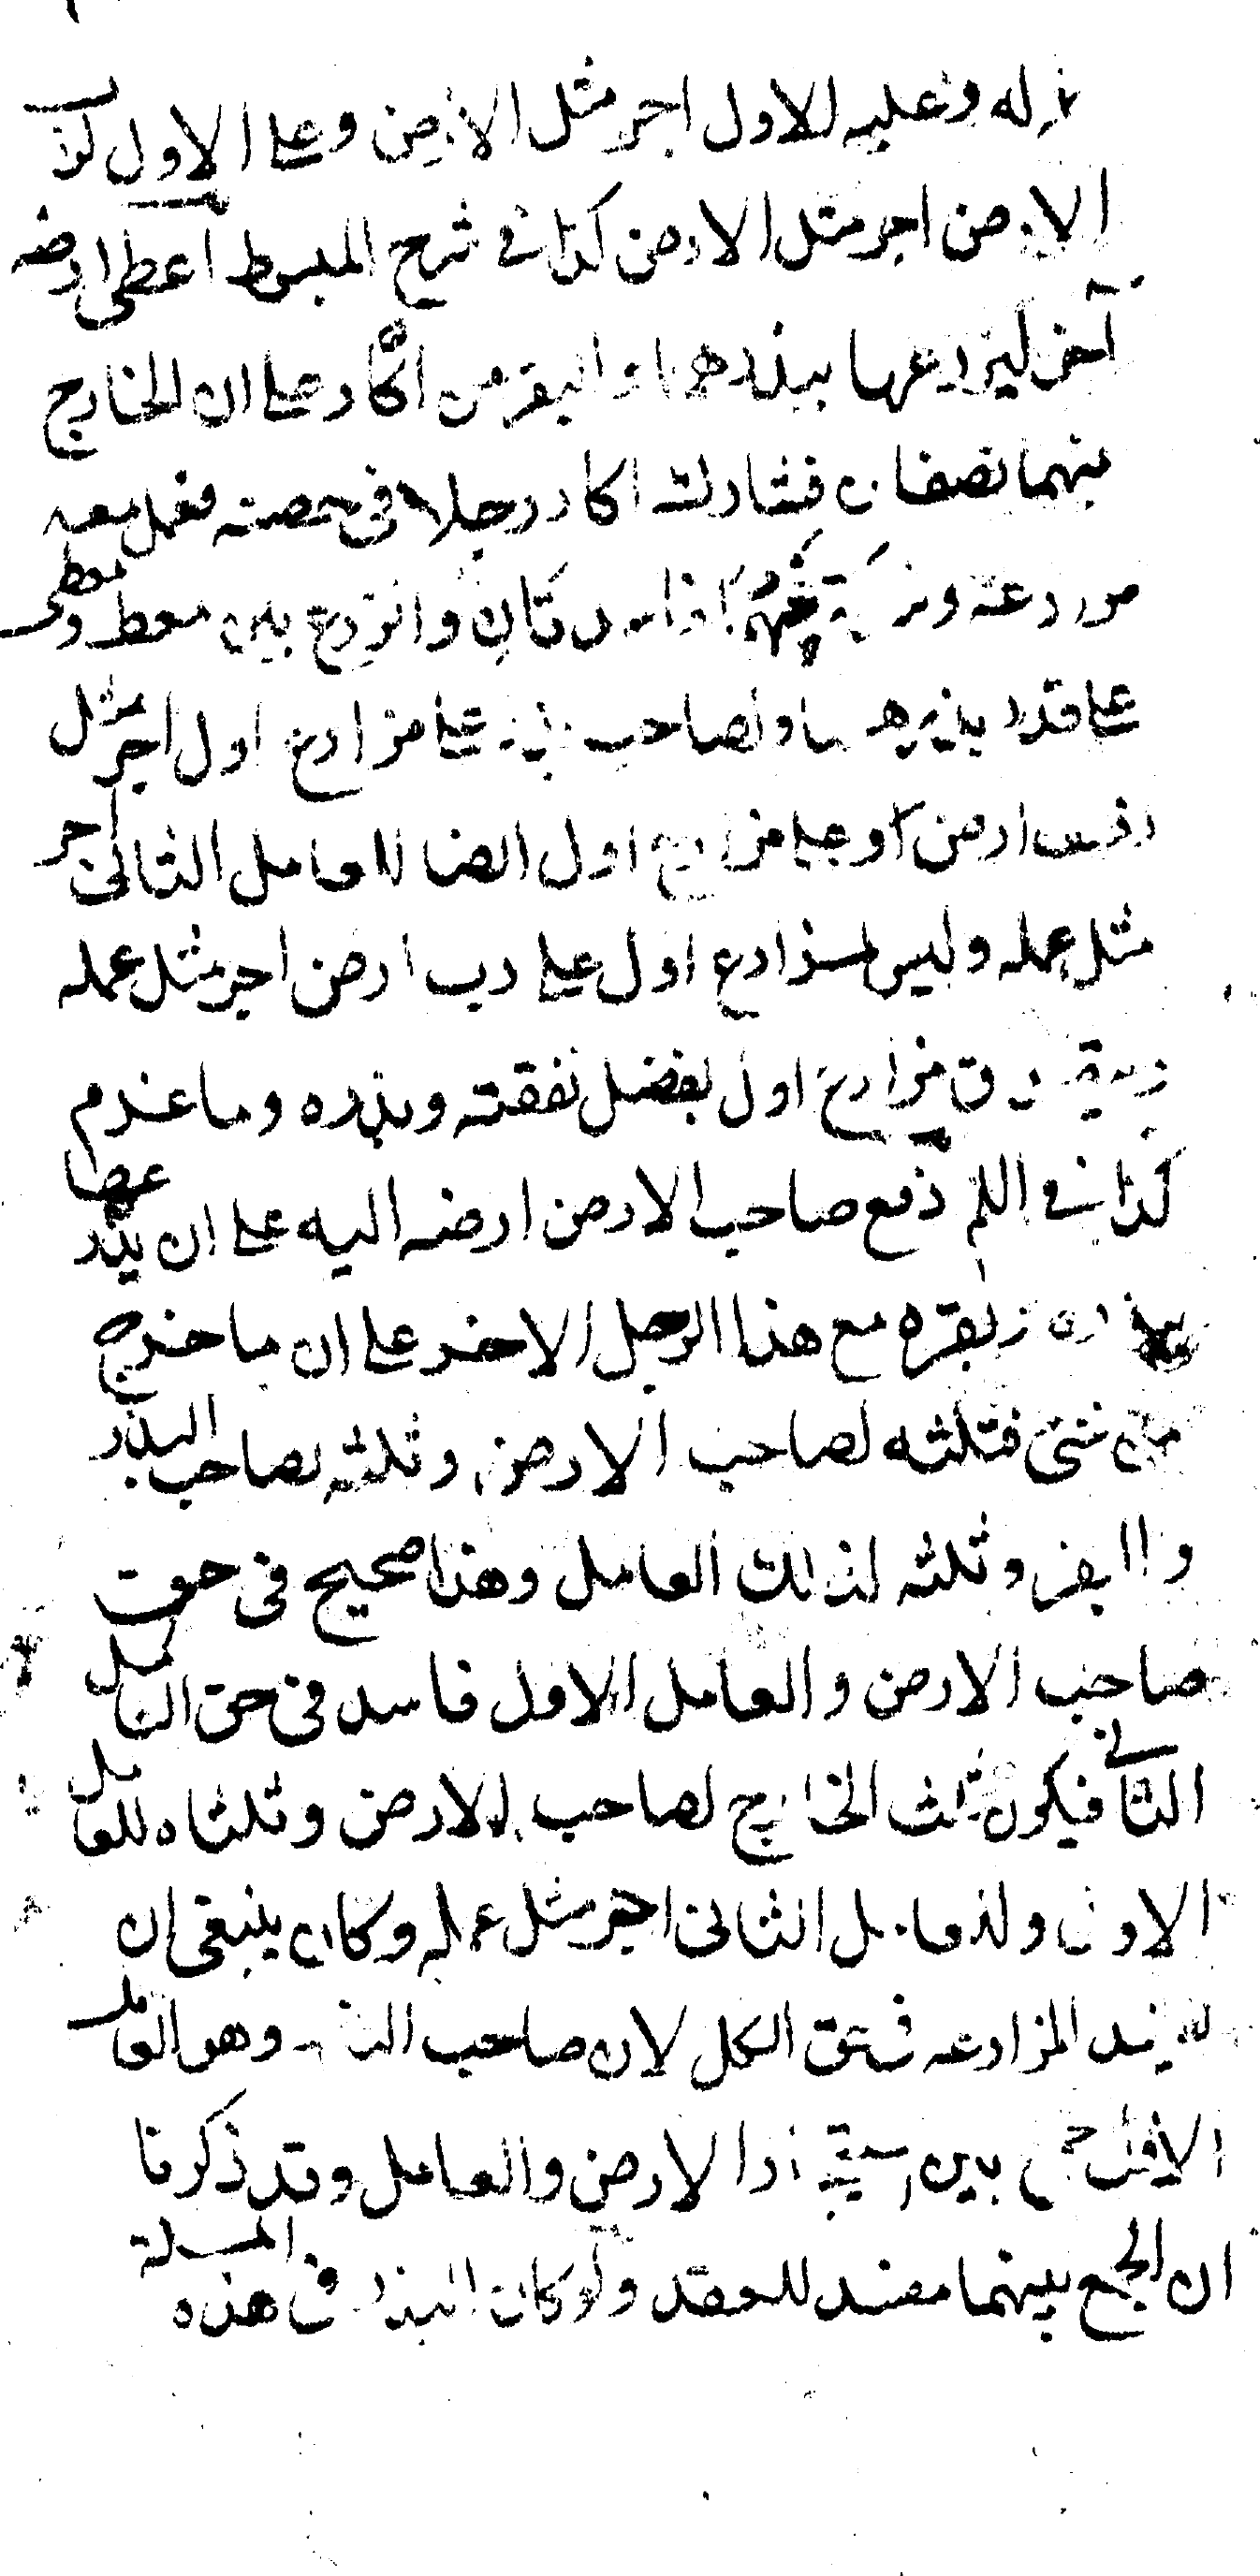 له وعليه للاول اجر مثل الارض وعلى الاول لرب
الارض اجر مثل الارض كذا في شرح المبسوط اعطى ارضه
آخر ليزرعها ببذرهما والبقر من اكار وعلى ان الخارج
بينهما نصفان فشارك اكار رجلا في حصته فعمل معه
مزارعة وشركة فاسدتان والزرع بين معط ومعطى
على قدر بذرهما ولصاحب على مزارع اول اجر مثل
ارض وعلى مزارع اول ايضا للعامل الثاني اجر
مثل عمله وليس لمزارع اول على رب ارض اجر مثل عمله
مزارع اول بفضل نفقته وبذره وما غرم
كذا في دفع صاحب الارض ارضه اليه على ان يزرعها
ببذره وبقره مع هذا الرجل الاخر على ان ما خرج
من شئ فثلثه لصاحب الارض وثلثه لصاحب البذر
والبقر وثلثه لذلك العامل وهذا صحيح في حق
صاحب الارض والعامل الاول فاسد في حق العامل
الثاني فيكون ثلث الخارج لصاحب الارض وثلثاه للعامل
الاول وللعامل الثاني اجر مثل عمله وكان ينبغي ان
يفسد المزارعه في حق الكل لان صاحب البذر وهو العامل
الاول جمع بين الارض والعامل وقد ذكرنا
ان الجمع بينهما مفسد للعقد ولو كان البذر في هذه المسئلة